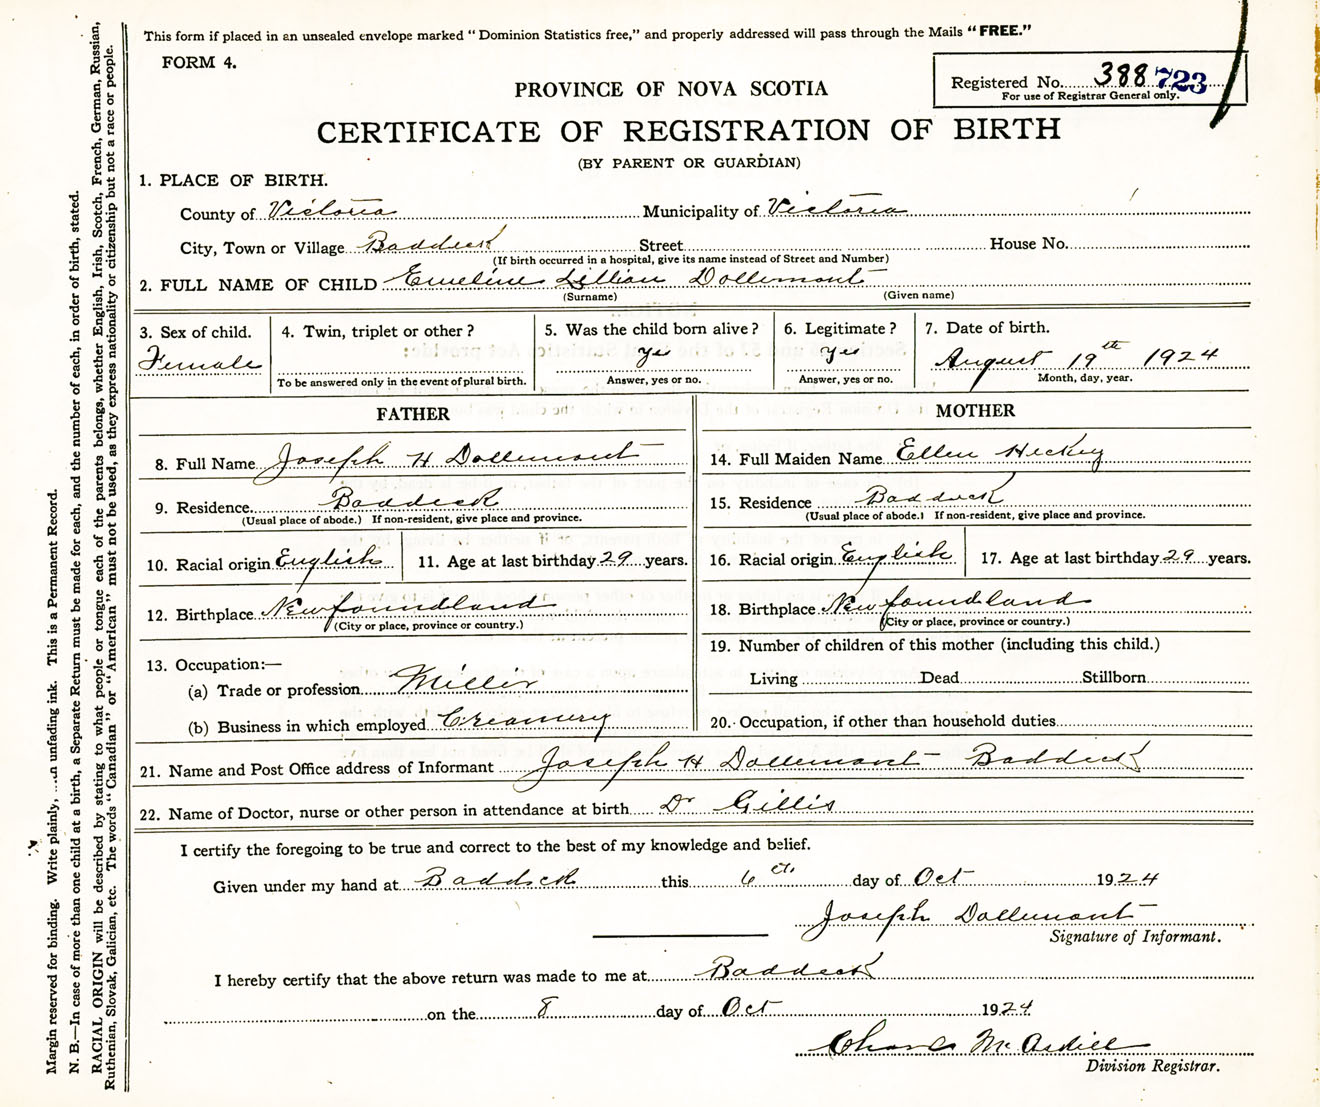 This form if placed in an unsealed envelope marked "Dominion Statistics free," and properly addressed will pass through the Mails "FREE."
FORM 4.
Registered No. 388723
For use of Registrar General only.
PROVINCE OF NOVA SCOTIA
CERTIFICATE OF REGISTRATION OF BIRTH
(BY PARENT OR GUARDIAN)
1. PLACE OF BIRTH.
County of Victoria Municipality of Victoria
City, Town or Village Baddeck Street House No.
(If birth occurred in a hospital, give its name instead of Street and Number)
2. FULL NAME OF CHILD Emeline Lillian Dollemont
(Surname) (Given name)
3. Sex of child. 4. Twin, triplet or other? 5. Was the child born alive? 6. Legitimate? 7. Date of birth.
Female yes yes August 19th 1924
To be answered only in the event of plural birth. Answer, yes or no. Answer, yes or no. Month, day, year.
FATHER
8. Full Name Joseph H Dollemont
9. Residence Baddeck
(Usual place of abode.) If non-resident, give place and province.
10. Racial origin English 11. Age at last birthday 29 years.
12. Birthplace Newfoundland
(City or place, province or country.)
13. Occupation:—
(a) Trade or profession Miller
(b) Business in which employed Creamery
MOTHER
14. Full Maiden Name Ellen Hickey
15. Residence Baddeck
(Usual place of abode.) If non-resident, give place and province.
16. Racial origin English 17. Age at last birthday 29 years.
18. Birthplace Newfoundland
(City or place, province or country.)
19. Number of children of this mother (including this child.)
Living Dead Stillborn
20. Occupation, if other than household duties
21. Name and Post Office address of Informant Joseph H Dollemont Baddeck
22. Name of Doctor, nurse or other person in attendance at birth Dr Gillis
I certify the foregoing to be true and correct to the best of my knowledge and belief.
Given under my hand at Baddeck this 6th day of Oct 1924
Joseph Dollemont
Signature of Informant.
I hereby certify that the above return was made to me at Baddeck
on the 8 day of Oct 1924
Chas McAskill
Division Registrar.
Margin reserved for binding. Write plainly, unfading ink. This is a Permanent Record.
N. B.—In case of more than one child at a birth, a Separate Return must be made for each, and the number of each, in order of birth, stated.
RACIAL ORIGIN will be described by stating to what people or tongue each of the parents belongs, whether English, Irish, Scotch, French, German, Russian,
Ruthenian, Slovak, Galician, etc. The words "Canadian" or "American" must not be used, as they express nationality or citizenship but not a race or people.